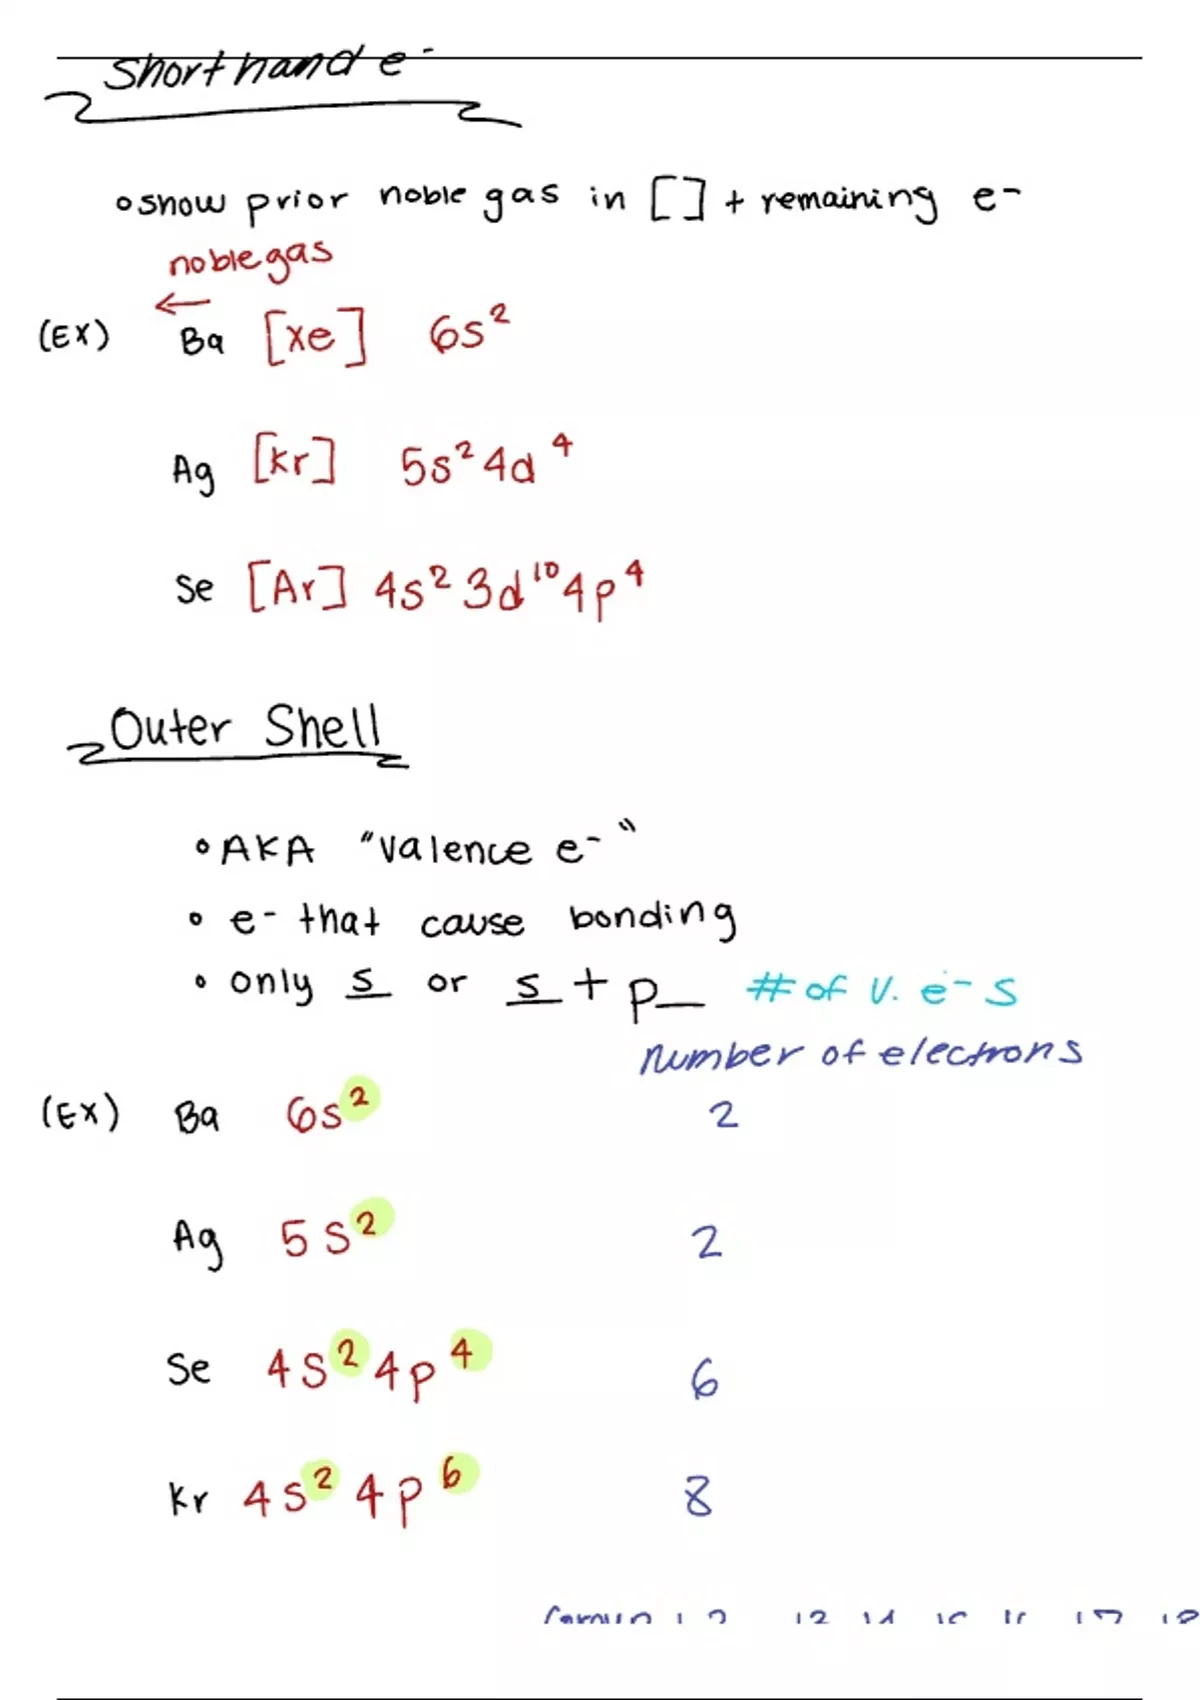 Shorthand e-
• show prior noble gas in [ ] + remaining e-
noble gas
←
(EX) Ba [Xe] 6s²
Ag [Kr] 5s² 4d⁴
Se [Ar] 4s² 3d¹⁰ 4p⁴
Outer Shell
• AKA "valence e-"
• e- that cause bonding
• only s or s + p_ # of v. e- s
number of electrons
(EX) Ba 6s² 2
Ag 5s² 2
Se 4s² 4p⁴ 6
Kr 4s² 4p⁶ 8